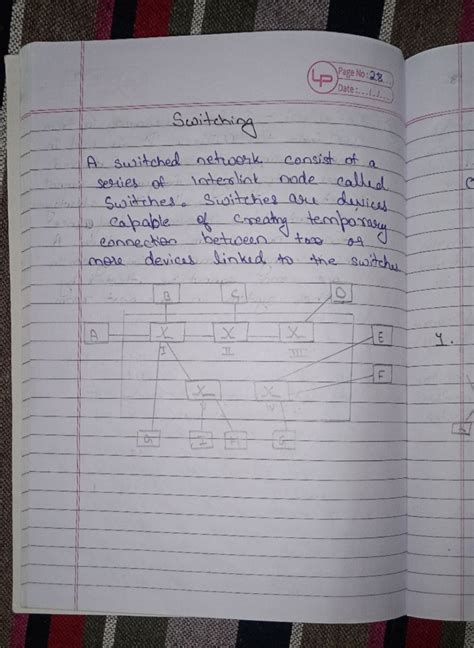 LP
Page No : 28
Date : ...../...../......
Switching
A switched network consist of a
series of Interlink node called
Switches. Switches are devices
capable of creatng temporary
connection between too or
more devices linked to the switches
B C D
A X X X E
I II III
F
X X
G I H G
Y.